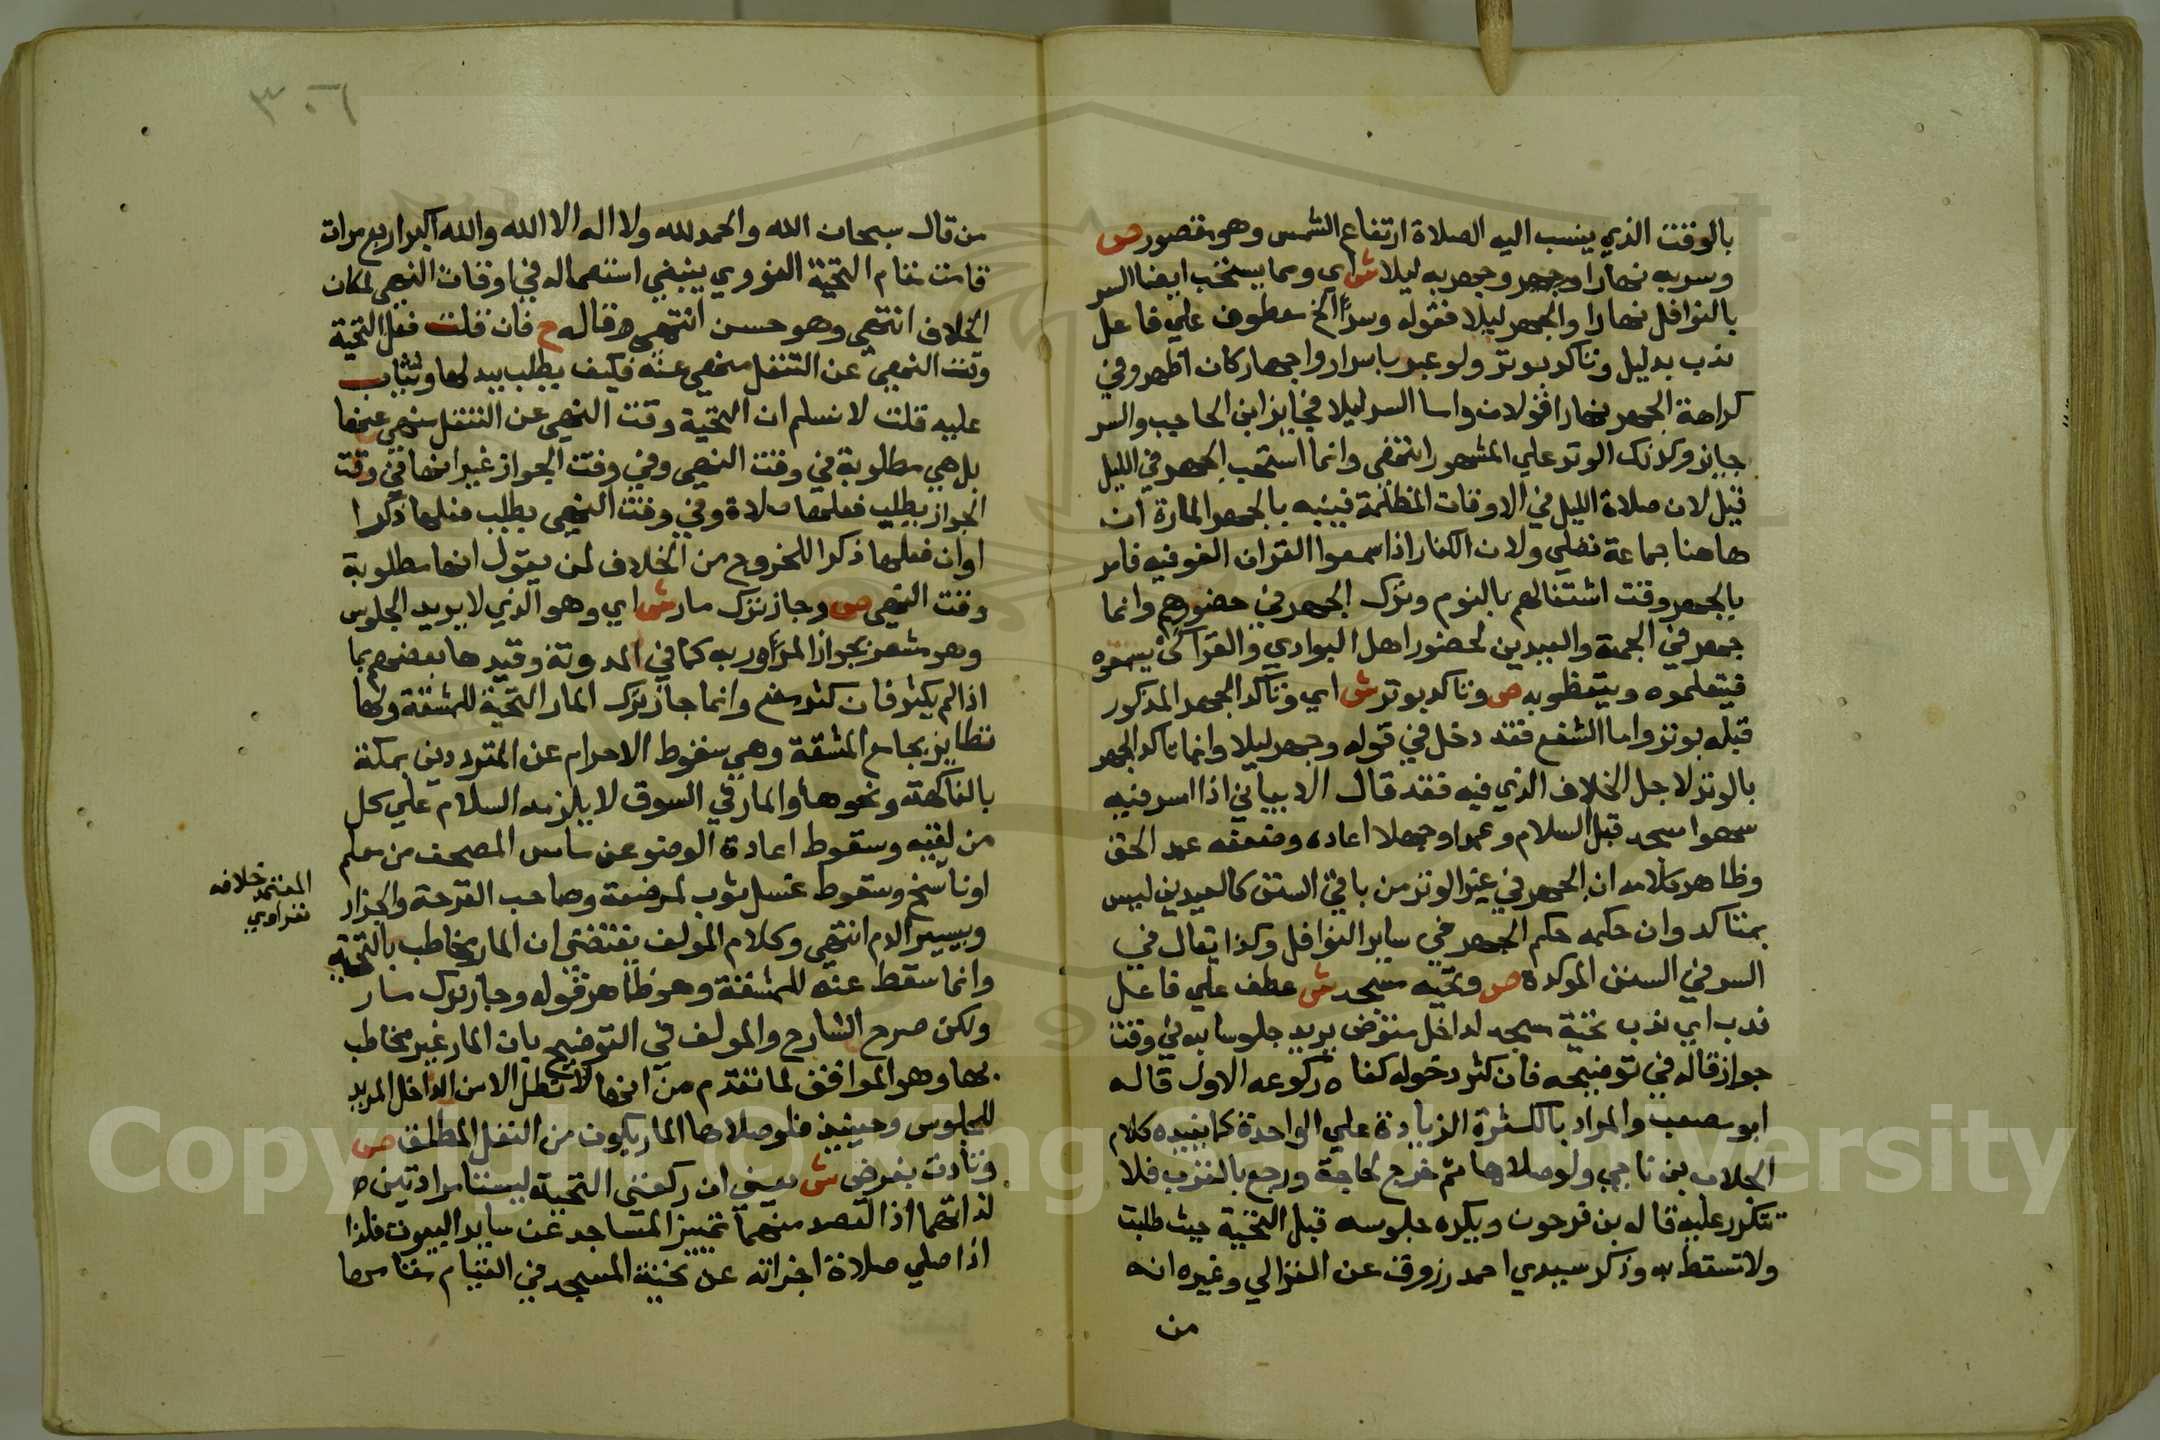 بالوقت الذي ينسب اليه الصلاة ارتفاع الشمس وهو مقصور ص
وسر به نهارا وجهر وجهر به ليلا ش اي ومما يستحب ايضا السر
بالنوافل نهارا والجهر ليلا فقوله وسرا الخ معطوف علي فاعل
ندب بدليل وتاكد بوتر ولو عبر باسرار واجهار كان اظهر وفي
كراهة الجهر نهارا قولان واما السر ليلا فجايز ابن الحاجب والسر
جايز وكذلك الوتر علي المشهور انتهي وانما استحب الجهر في الليل
قيل لان صلاة الليل في الاوقات المظلمة فينبه بالجهر المارة ان
هاهنا جماعة تصلي ولان الكفار اذا سمعوا القران لغو فيه فامر
بالجهر وقت اشتغالهم بالنوم وترك الجهر في حضورهم وانما
جهر في الجمعة والعيدين لحضور اهل البوادي والقرا كي يسمعوه
فيتعلموه ويتعظوا به ص وتاكد بوتر ش اي وتاكد الجهر المذكور
قبله بوتر واما الشفع فقد دخل في قوله وجهر ليلا وانما تاكد الجهر
بالوتر لاجل الخلاف الذي فيه فقد قال الابياني اذا اسر فيه
سهوا سجد قبل السلام وعمدا وجهلا اعاده وضعفه عبد الحق
وظاهر كلامه ان الجهر في غير الوتر من باقي السنن كالعيدين ليس
بمتاكد وان حكمه حكم الجهر في ساير النوافل وكذا يقال في
السر في السنن الموكدة ص وتحيه مسجد ش عطف علي فاعل
ندب اي ندب تحية مسجد لداخل متوض يريد جلوسا به في وقت
جواز قاله في توضيحه فان كثر دخوله كفاه ركوعه الاول قاله
ابو مصعب والمراد بالكثرة الزيادة علي الواحدة كما يفيده كلام
الجلاب بن ناجي ولو صلاها ثم خرج لحاجة ورجع بالقرب فلا
تتكرر عليه قاله بن فرحون ويكره جلوسه قبل التحية حيث طلبت
ولا تسقط به وذكر سيدي احمد زروق عن الغزالي وغيره انه
من
٣٠٦
من قال سبحان الله والحمد لله ولا اله الا الله والله اكبر اربع مرات
قامت مقام التحية النووي ينبغي استعماله في اوقات النهي لمكان
الخلاف انتهي وهو حسن انتهي قاله ح فان قلت فعل التحية
وقت النهي عن التنفل منهي عنه فكيف يطلب ببدلها ويثاب
عليه قلت لا نسلم ان التحية وقت النهي عن التنفل منهي عنها
بل هي مطلوبة في وقت النهي وفي وقت الجواز غير انها في وقت
الجواز يطلب فعلها صلاة وفي وقت النهي يطلب فعلها ذكرا
او ان فعلها ذكرا للخروج من الخلاف لمن يقول انها مطلوبة
وقت النهي ص وجاز ترك مار ش اي وهو الذي لا يريد الجلوس
وهو مشعر بجواز المرور به كما في المدونة وقيدها بعضهم بما
اذا لم يكثر فان كثر منع وانما جاز ترك المار التحية للمشقة ولها
نظاير بجامع المشقة وهي سقوط الاحرام عن المترددين بمكة
بالفاكهة ونحوها والمار في السوق لا يلزمه السلام علي كل
من لقيه وسقوط اعادة الوضو عن ماس المصحف من معلم
او ناسخ وسقوط غسل ثوب لمرضعة وصاحب القرحة والجزار
ويسير الدم انتهي وكلام المولف يقتضي ان المار مخاطب بالتحية
وانما سقط عنه للمشقة وهو ظاهر قوله وجاز ترك مار
ولكن صرح الشارح والمولف في التوضيح بان المار غير مخاطب
بها وهو الموافق لما تقدم من انها لا تطلب الا من الداخل المريد
للجلوس وحينيذ فلو صلاها المار يكون من النفل المطلق ص
وتادت بفرض ش يعني ان ركعتي التحية ليستا مرادتين
لذاتهما اذ القصد منهما تمييز المساجد عن ساير البيوت فلذا
اذا صلي صلاة اجزاته عن تحية المسجد في القيام مقامها
المعتمد خلافه
نفراوي